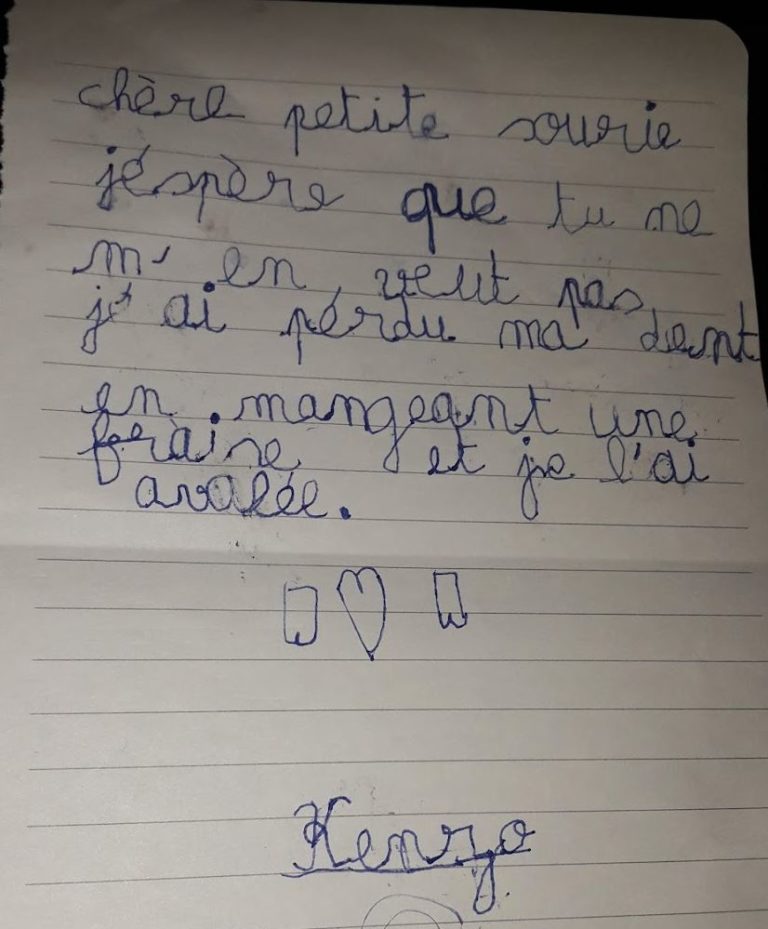 chère petite sourie
jéspère que tu ne
m' en veut pas
jé ai pérdu ma dent
en mangeant une
feraise et je l'ai
avalée.
Kenzo